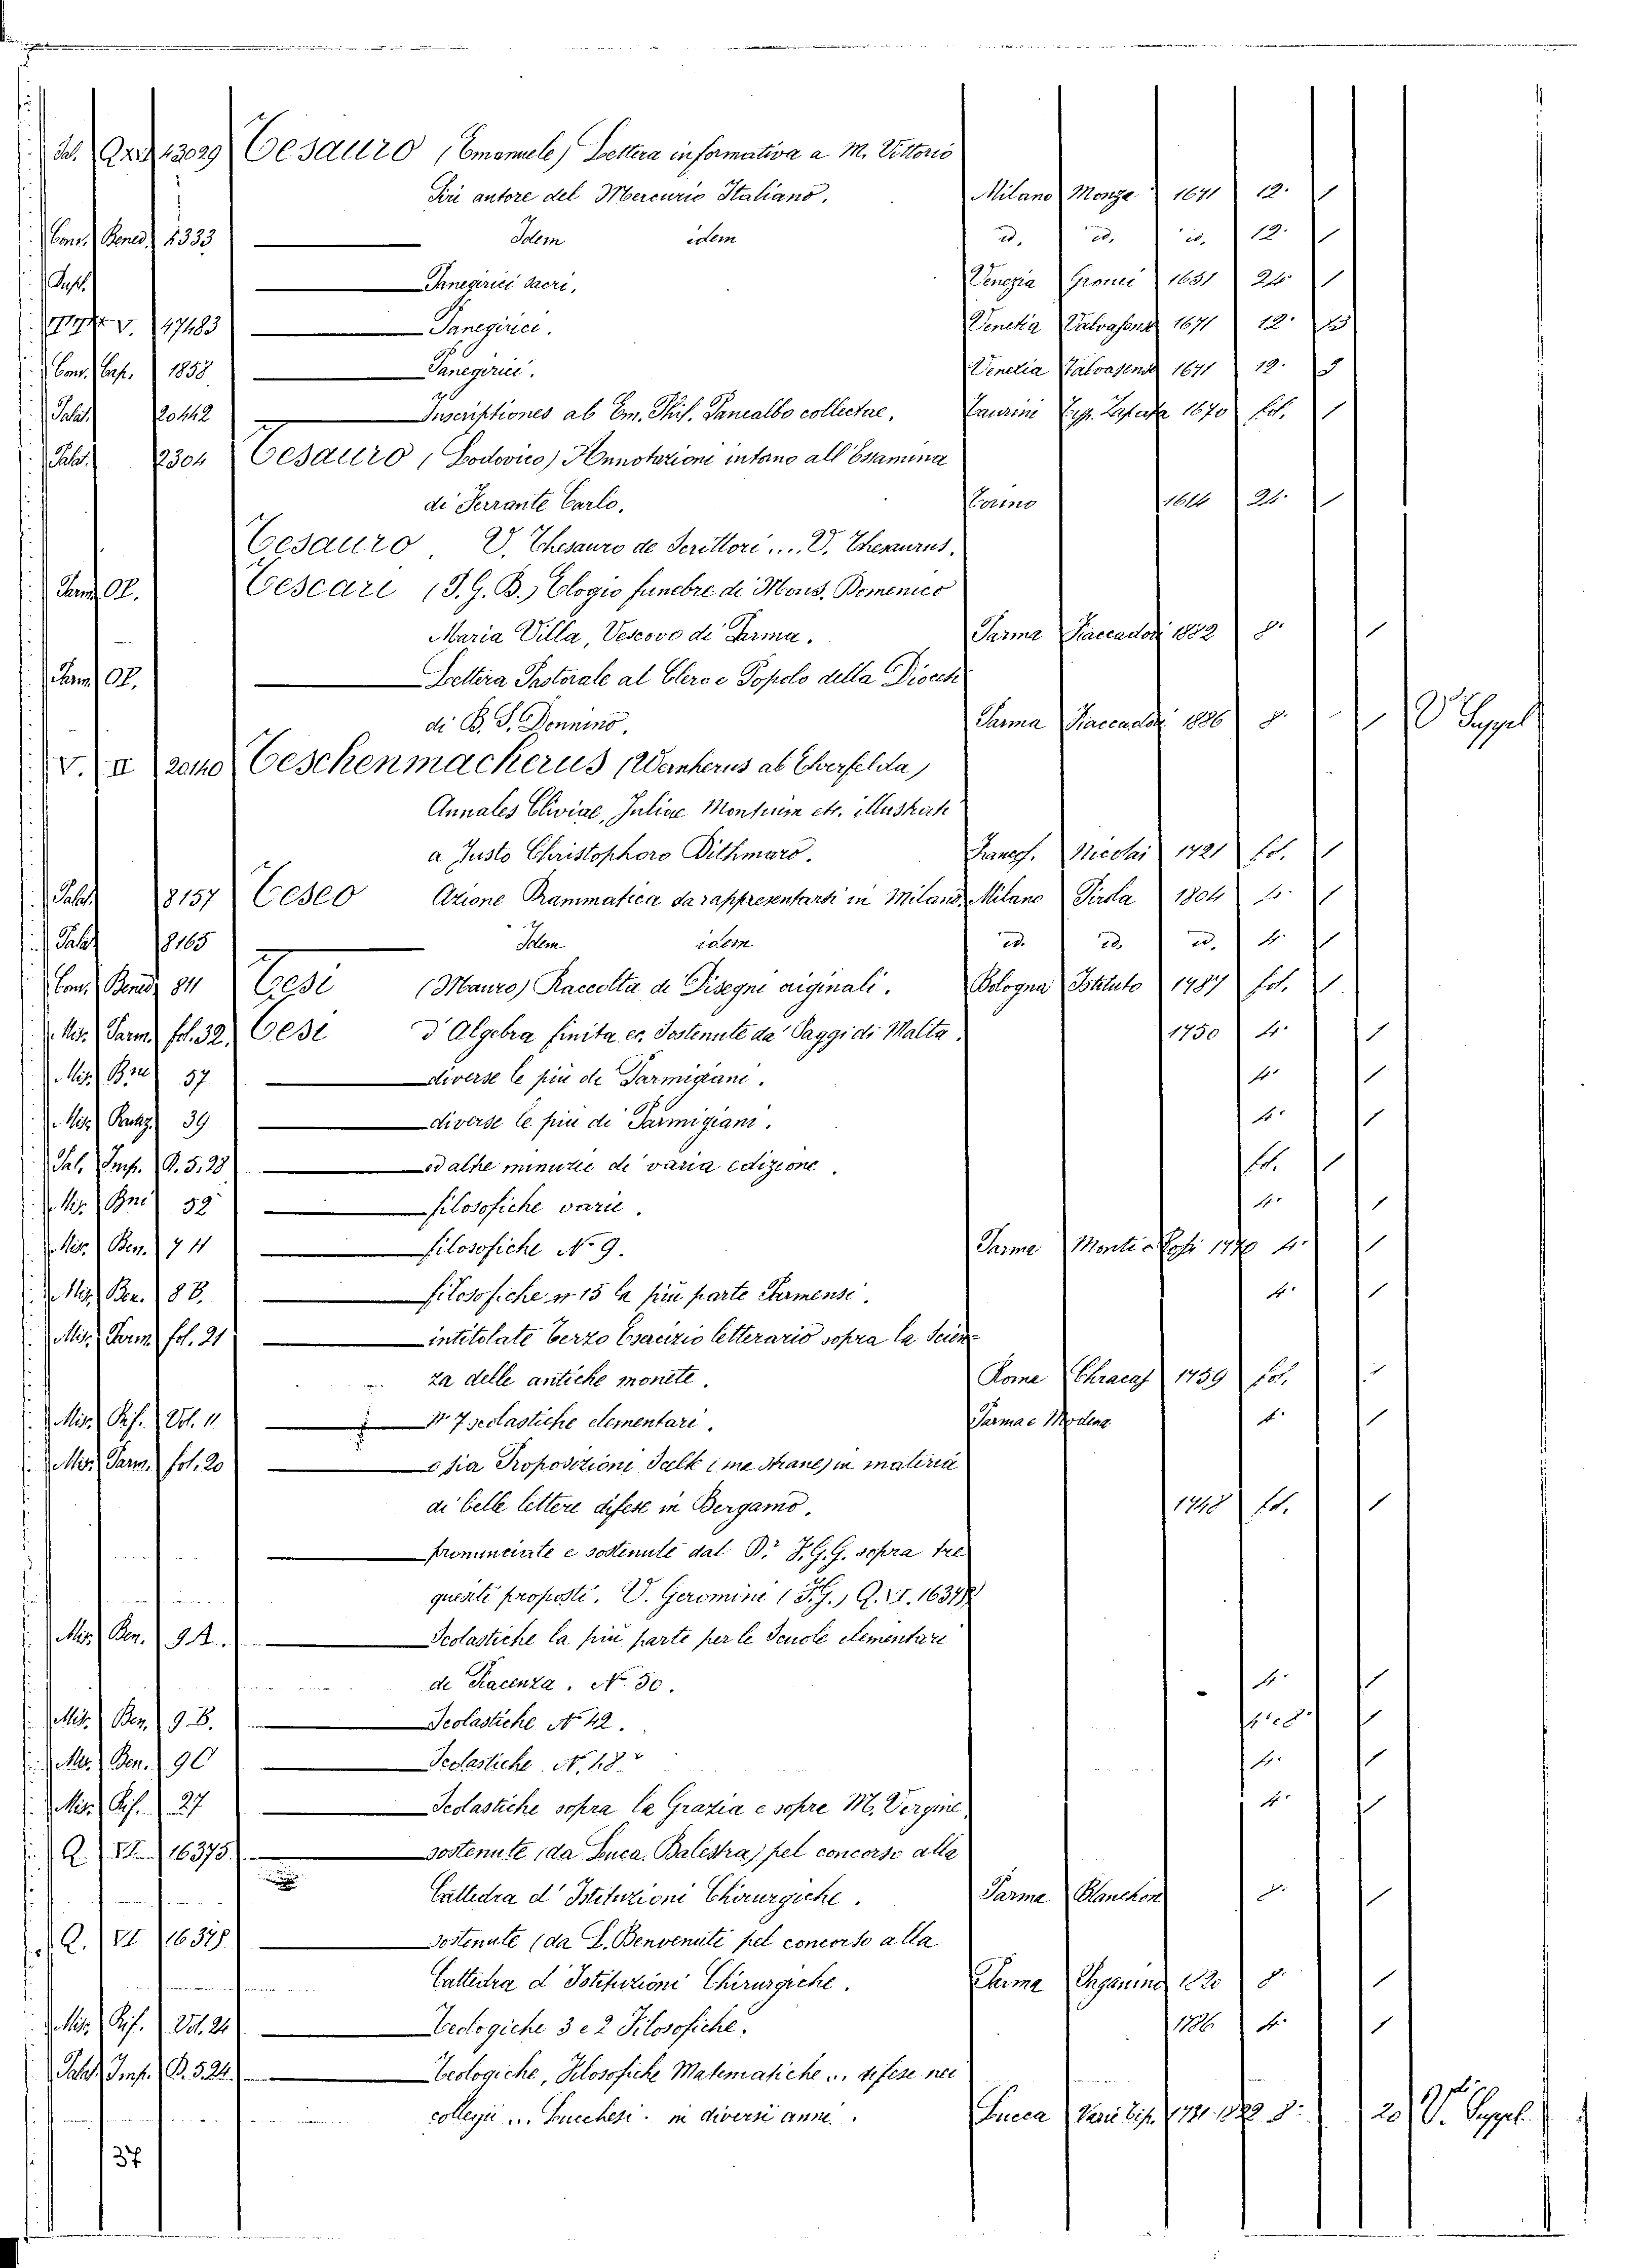 Tesauro (Emanuele) Lettera informativa a M. Vittorio
Siri autore del Mercurio Italiano. Milano Monza 1671 12. 1
Cons. Bened. 1333 Idem idem id. id. id. 12. 1
Panegirici sacri, Venezia 1681 24 1
V. 47483 Panegirici. Venetia Valvasense 1671 12.
Con. Cap. 1858 Panegirici. Venetia Valvasense 1671 12.
Palat. 20442 Inscriptiones ab Em. Phil. Panealbo collectae, Taurini Typ. Zapatae 1670 fol. 1
Palat. 2304 Tesauro, (Lodovico) Annotazioni intorno all'Esamina
di Ferrante Carlo. Torino 1614 24. 1
Tesauro, V. Thesauro de Scrittori.... V. Thesaurus.
Parm. Ol. Tescari (T. G. B.) Elogio funebre di Mons. Domenico
Maria Villa, Vescovo di Parma. Parma Fiaccadori 1882 8. 1
Parm. Ol. Lettera Pastorale al Clero e Popolo della Diocesi
di B. S. Donnino. Parma Fiaccadori 1886 8. 1 V. Suppl
V. II 20140 Teschenmacherus (Wernherus ab Elverfelda)
Annales Cliviae, Juliae Montium etc. illustrati
a Justo Christophoro Dithmaro. Francf. Nicolai 1721 fol. 1
Palat. 18157 Teseo Azione Drammatica da rappresentarsi in Milano. Milano Pirola 1804 4. 1
Palat. 18165 Idem idem id. id. id. 4. 1
Con. Bened. 811 Tesi (Mauro) Raccolta di Disegni originali. Bologna Istituto 1787 fol. 1
Mis. Parm. fol. 32. Tesi d'Algebra finita ec. Sostenute da' Paggi di Malta. 1750 4. 1
Mis. 57 diverse le più de Parmigiani. 4. 1
Mis. 39 diverse le più di Parmigiani. 4. 1
Pal. Imp. P. 5. 28 ed altre minuzie di varia edizione. fol. 1
Mis. 52 filosofiche varie. 4. 1
Mis. Ben. 74 filosofiche N. 9. Parma Monti 1770 4. 1
Mis. Ben. 88. filosofiche n. 15 la più parte Parmensi. 4. 1
Mis. Parm. fol. 21 intitolate Terzo Esercizio letterario sopra la Scien-
za delle antiche monete. Roma Chracas 1759 fol. 1
Mis. Rif. Vol. 11 N. 7 scolastiche elementari. Parma e Modena 4. 1
Mis. Parm. fol. 20 o sia Proposizioni in materia
di belle lettere difese in Bergamo. 1748 fol. 1
pronunciate e sostenute dal Dr. F. G. G. sopra tre
quesiti proposti. V. Geromini (F. G.)
Mis. Ben. 92. Scolastiche la più parte per le Scuole elementari
di Piacenza. N. 50. 4. 1
Mis. Ben. 98. Scolastiche N. 42. 4. e 8. 1
Mis. Ben. 90 Scolastiche N. 48. 4. 1
Mis. Rif. 27 Scolastiche sopra la Grazia e sopra M. Vergine 4. 1
Q. VI. 16375. sostenute (da Luca. Balestra) pel concorso alla
Cattedra d'Istituzioni Chirurgiche. Parma Blanchon 8. 1
Q. VI 16378 sostenute (da L. Benvenuti pel concorso alla
Cattedra d'Istituzioni Chirurgiche. Parma Paganino 1820 8. 1
Mis. Rif. Vol. 24 Teologiche 3 e 2 Filosofiche. 1786 4. 1
Palat. Imp. P. 5. 24 Teologiche, Filosofiche Matematiche ... difese nei
collegii ... Lucchesi. in diversi anni. Lucca 8. 20 V. Suppl.
37